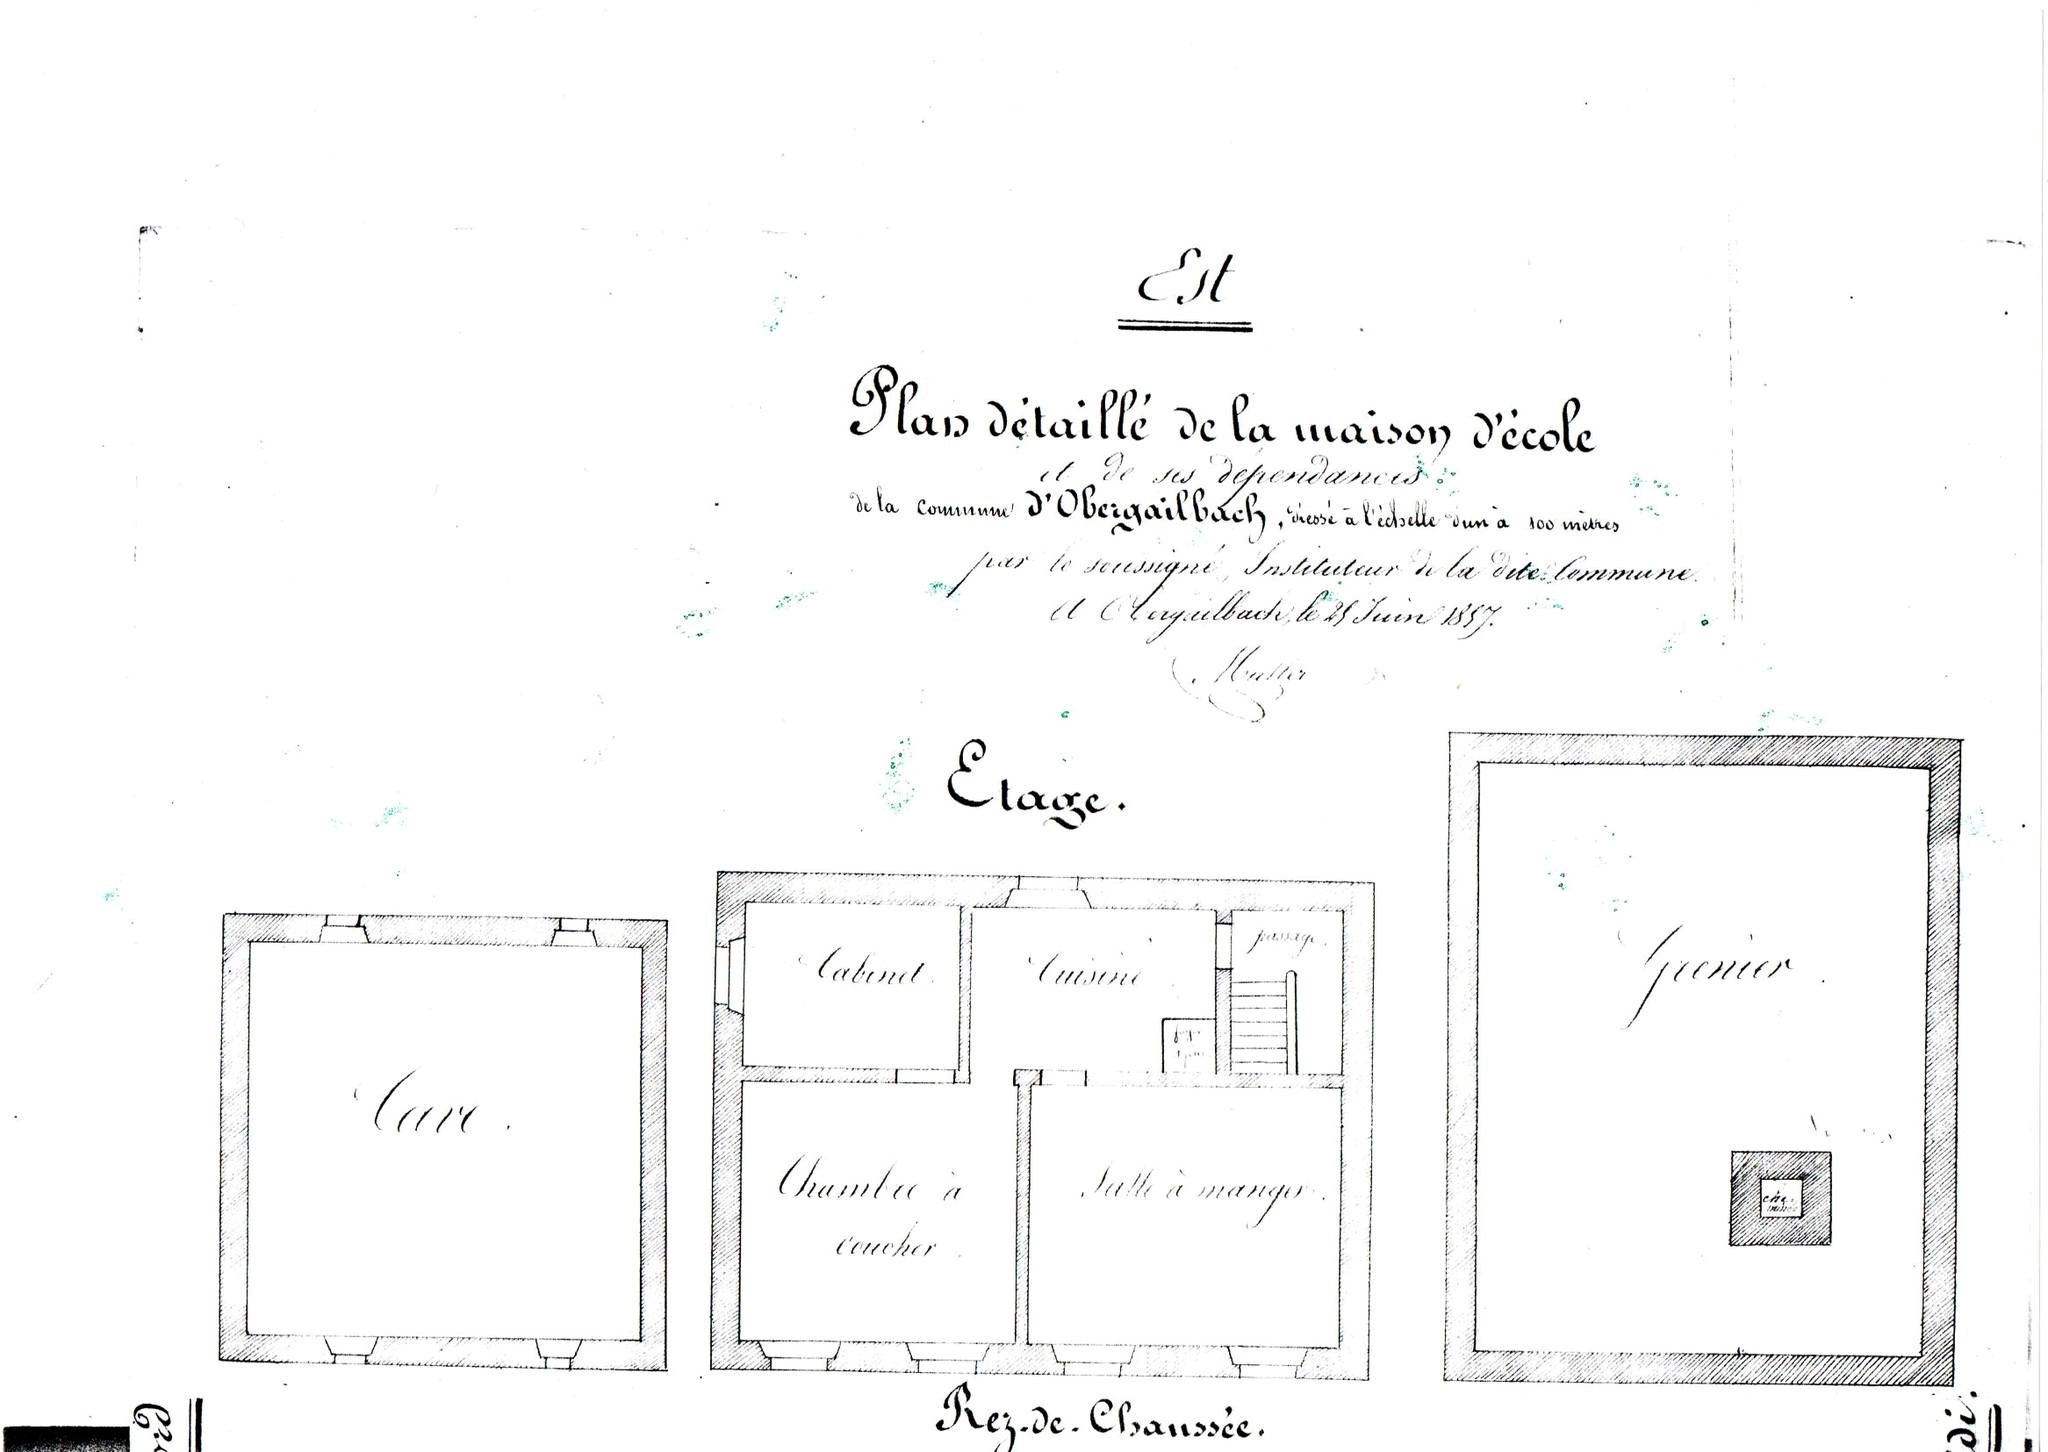 Est
Plan détaillé de la maison d'école
et de ses dépendances
de la commune d'Obergailbach, dressé à l'échelle d'un à 100 mètres
par le soussigné, Instituteur de la dite Commune.
A Obergailbach, le 25 Juin 1857.
Etage.
Cabinet.
Cuisine
passage.
Grenier.
Cave.
Chambre à
coucher.
Salle à manger.
che-
minée
Rez-de-Chaussée.